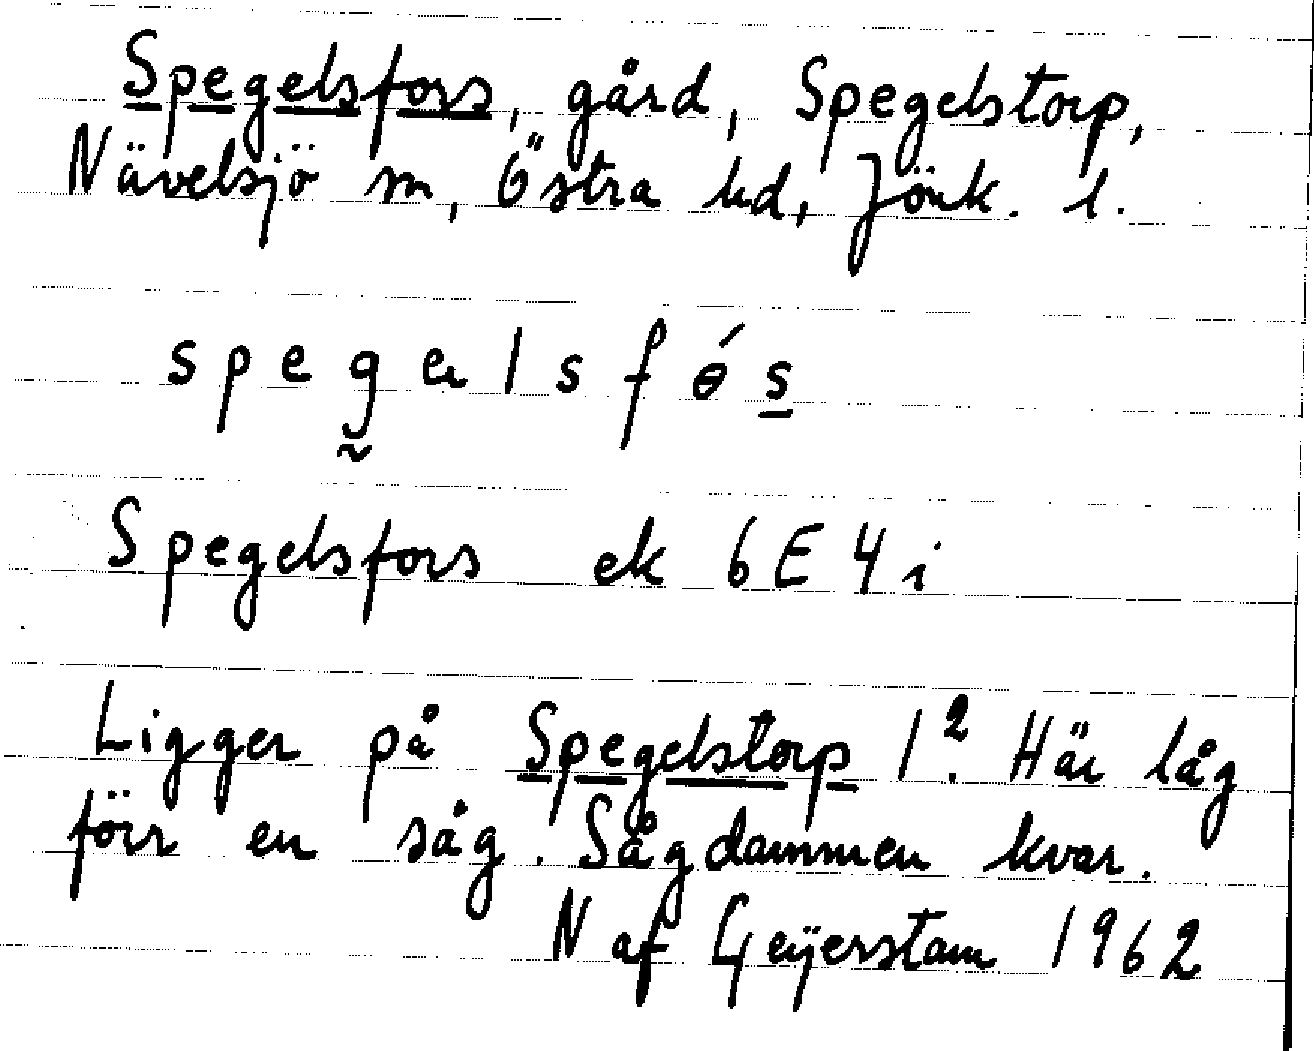 Spegelsfors, gård, Spegelstorp,
Nävelsjö sn, Östra hd, Jönk. l.
spegelsfɵ́s
Spegelsfors ek 6E4i
Ligger på Spegelstorp 1². Här låg
förr en såg. Sågdammen kvar.
N af Geijerstam 1962